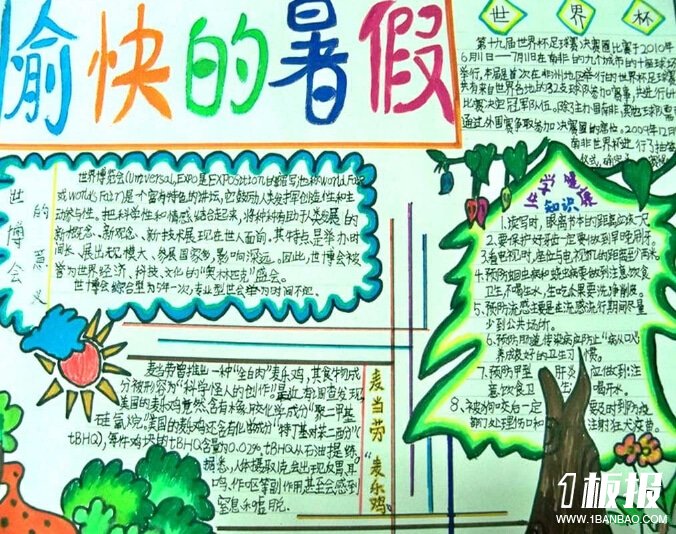 愉快的暑假
世界杯
第十九届世界杯足球赛决赛圈比赛于2010年
6月11日—7月11日在南非的九个城市的十座球场
举行,本届是首次在非洲地区举行的世界杯足球赛
共有来自世界各地的32支球队参加赛事,共进行64
比赛决定冠军队伍。除了主办国南非,其他球队需
通过外围赛争取参加决赛圈的席位。2009年12月
南非世界杯进行了抽签
仪式,确定了
世博会的意义
世界博览会(Universal,EXPO是EXPOSition的缩写,也称World Fair
或World's Fair)是个富有特色的讲坛,它鼓励人类发挥创造性和主
动参与性。把科学性和情感结合起来,将种种有助于人类发展的
新概念、新观念、新技术展现在世人面前。其特点是举办时
间长、展出规模大、参展国家多、影响深远。因此,世博会被
誉为世界经济、科技、文化的"奥林匹克"盛会。
世博会综合型为5年一次,专业型世会举办时间不吧.
知识集
1、读写时,眼离书本的距离应该一尺
2、要保护好牙齿一定要做到早晚刷牙。
3、看电视时,座位与电视机的距离
4、预防蛔虫病和蛲虫病要做到注意饮食
卫生,不喝生水,生吃瓜果要洗净削皮。
5、预防流感主要是在流感流行期间尽量
少到公共场所。
6、预防肠道传染病应防止"病从口入"
养成良好的卫生习惯。
7、预防甲型肝炎应做到:注
意饮食卫生,喝开水。
8、被狗咬英后一定要及时到防疫
部门处理伤口和注射狂犬疫苗。
麦当劳 麦乐鸡
麦当劳曾推出一种"全白肉"麦乐鸡,其食物成
分被形容为"科学怪人的创作"最近,有调查发现,
美国的麦乐鸡竟然含有橡胶化学成分"聚二甲基
硅氧烷。"美国的麦乐鸡还含有化学成分"特丁基对苯二酚"(
tBHQ),每件鸡块的tBHQ含量为0.02%,tBHQ从石油提练,
据悉,人体摄取1克,会出现反胃,耳
鸣、作呕等副作用,甚至会感到
窒息和虚脱。
1板报
WWW.1BANBAO.COM